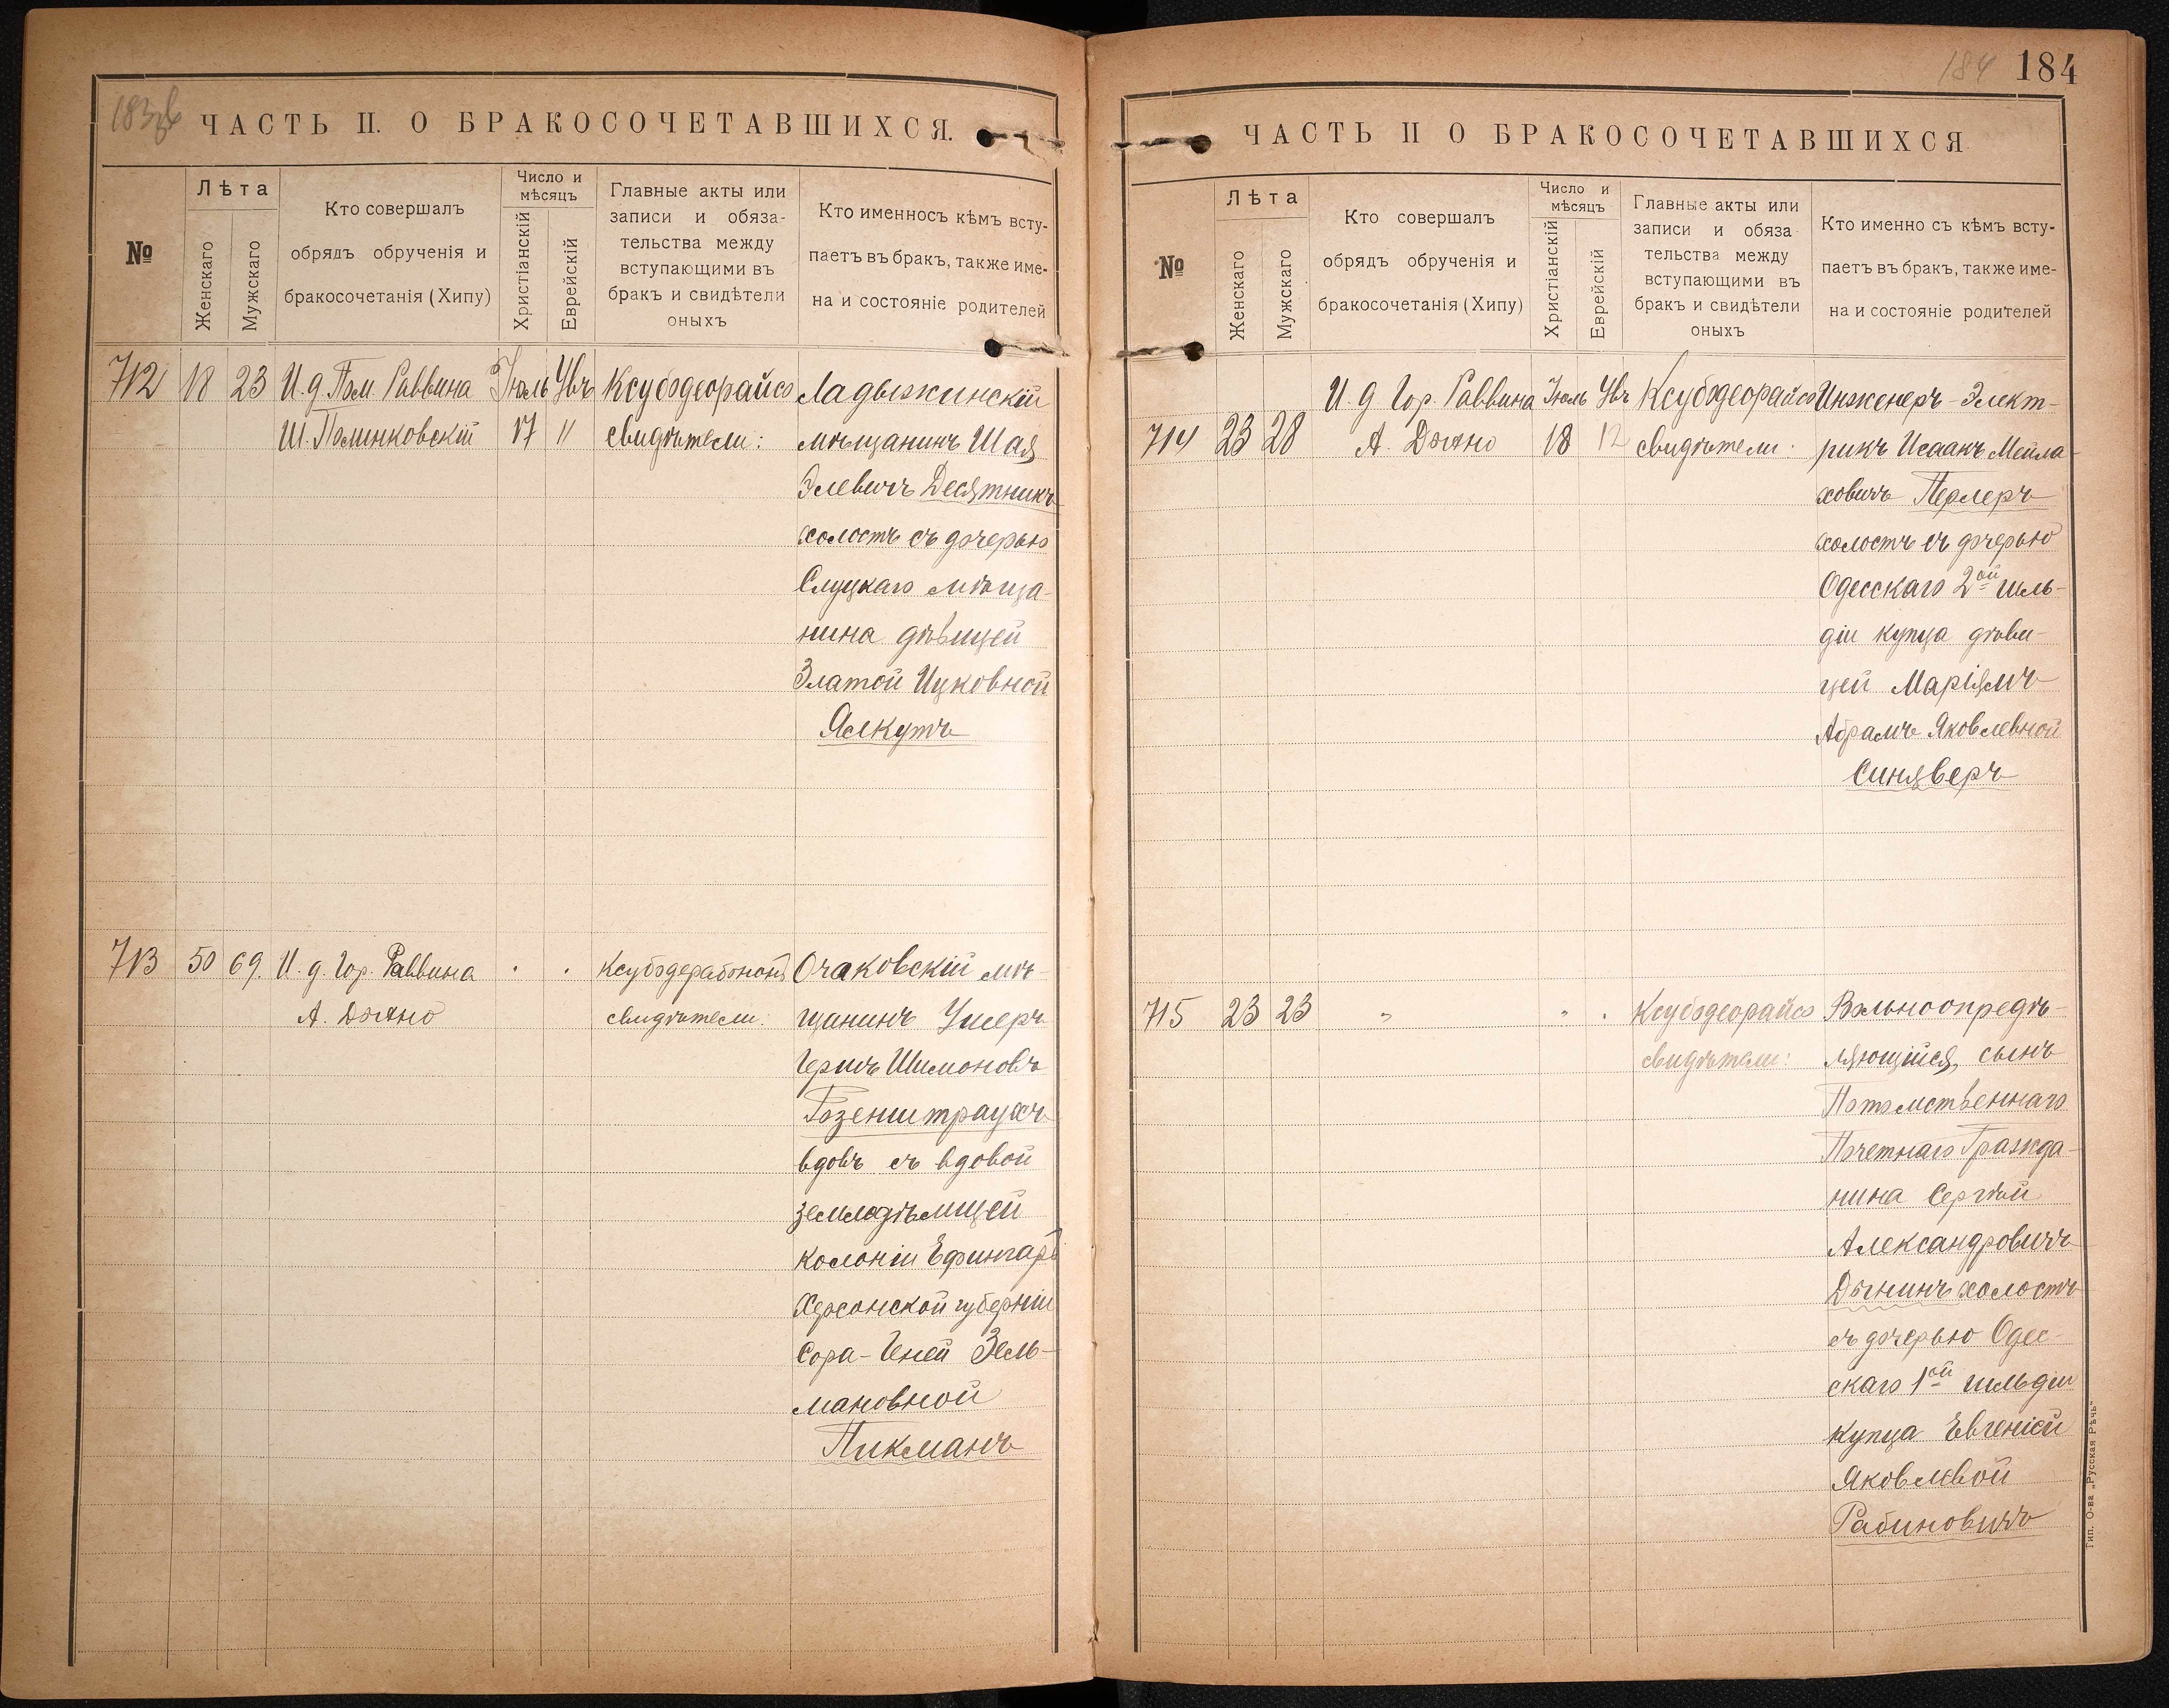 183об
ЧАСТЬ II. О БРАКОСОЧЕТАВШИХСЯ.
№
Лѣта
Женскаго
Мужскаго
Кто совершалъ
обрядъ обрученія и
бракосочетанія (Хипу)
Число и
мѣсяцъ
Христіанскій
Еврейскій
Главные акты или
записи и обяза-
тельства между
вступающими въ
бракъ и свидѣтели
оныхъ
Кто именносъ кѣмъ всту-
паетъ въ бракъ, также име-
на и состояніе родителей
712 18 23 И. д. Пом. Раввина Іюль Увъ Ксубодеорайсо Ладыжинскій
Ш. Полинковскій 17 11 свидѣтели: мѣщанинъ Шая
Элевичъ Десятникъ
холостъ съ дочерью
Слуцкаго мѣща-
нина дѣвицей
Златой Ицковной
Ялкутъ
713 50 69. И. д. Гор. Раввина " " Ксубодерабононъ Очаковскій мѣ-
А. Дыхно свидѣтели: щанинъ Ушеръ
Гершъ Шимоновъ
Розенштраухъ
вдовъ съ вдовой
земледѣлицей
колоніи Ефингаръ
Херсонской губерніи
Сора-Геней Зель-
мановной
Пикманъ
184 184
ЧАСТЬ II О БРАКОСОЧЕТАВШИХСЯ
№
Лѣта
Женскаго
Мужскаго
Кто совершалъ
обрядъ обрученія и
бракосочетанія (Хипу)
Число и
мѣсяцъ
Христіанскій
Еврейскій
Главные акты или
записи и обяза
тельства между
вступающими въ
бракъ и свидѣтели
оныхъ
Кто именно съ кѣмъ всту-
паетъ въ бракъ, также име-
на и состояніе родителей
И. д Гор. Раввина Іюль Увъ Ксубодеорайсо Инженеръ-Элект-
714 23 28 А. Дыхно 18 12 свидѣтели: рикъ Исаакъ Мейла-
ховичъ Перлеръ
холостъ съ дочерью
Одесскаго 2ой гиль-
діи купца дѣви-
цей Маріямъ
Абрамъ Яковлевной
Синяверъ
715 23 23 " " " Ксубодеорайсо Вольноопредѣ-
свидѣтели: ляющійся, сынъ
Потомственнаго
Почетнаго Гражда-
нина Сергѣй
Александровичъ
Дынинъ холостъ
съ дочерью Одес-
скаго 1ой гильдіи
купца Евгеніей
Яковлевой
Рабиновичъ
Тип. О-ва „Русская Рѣчь"